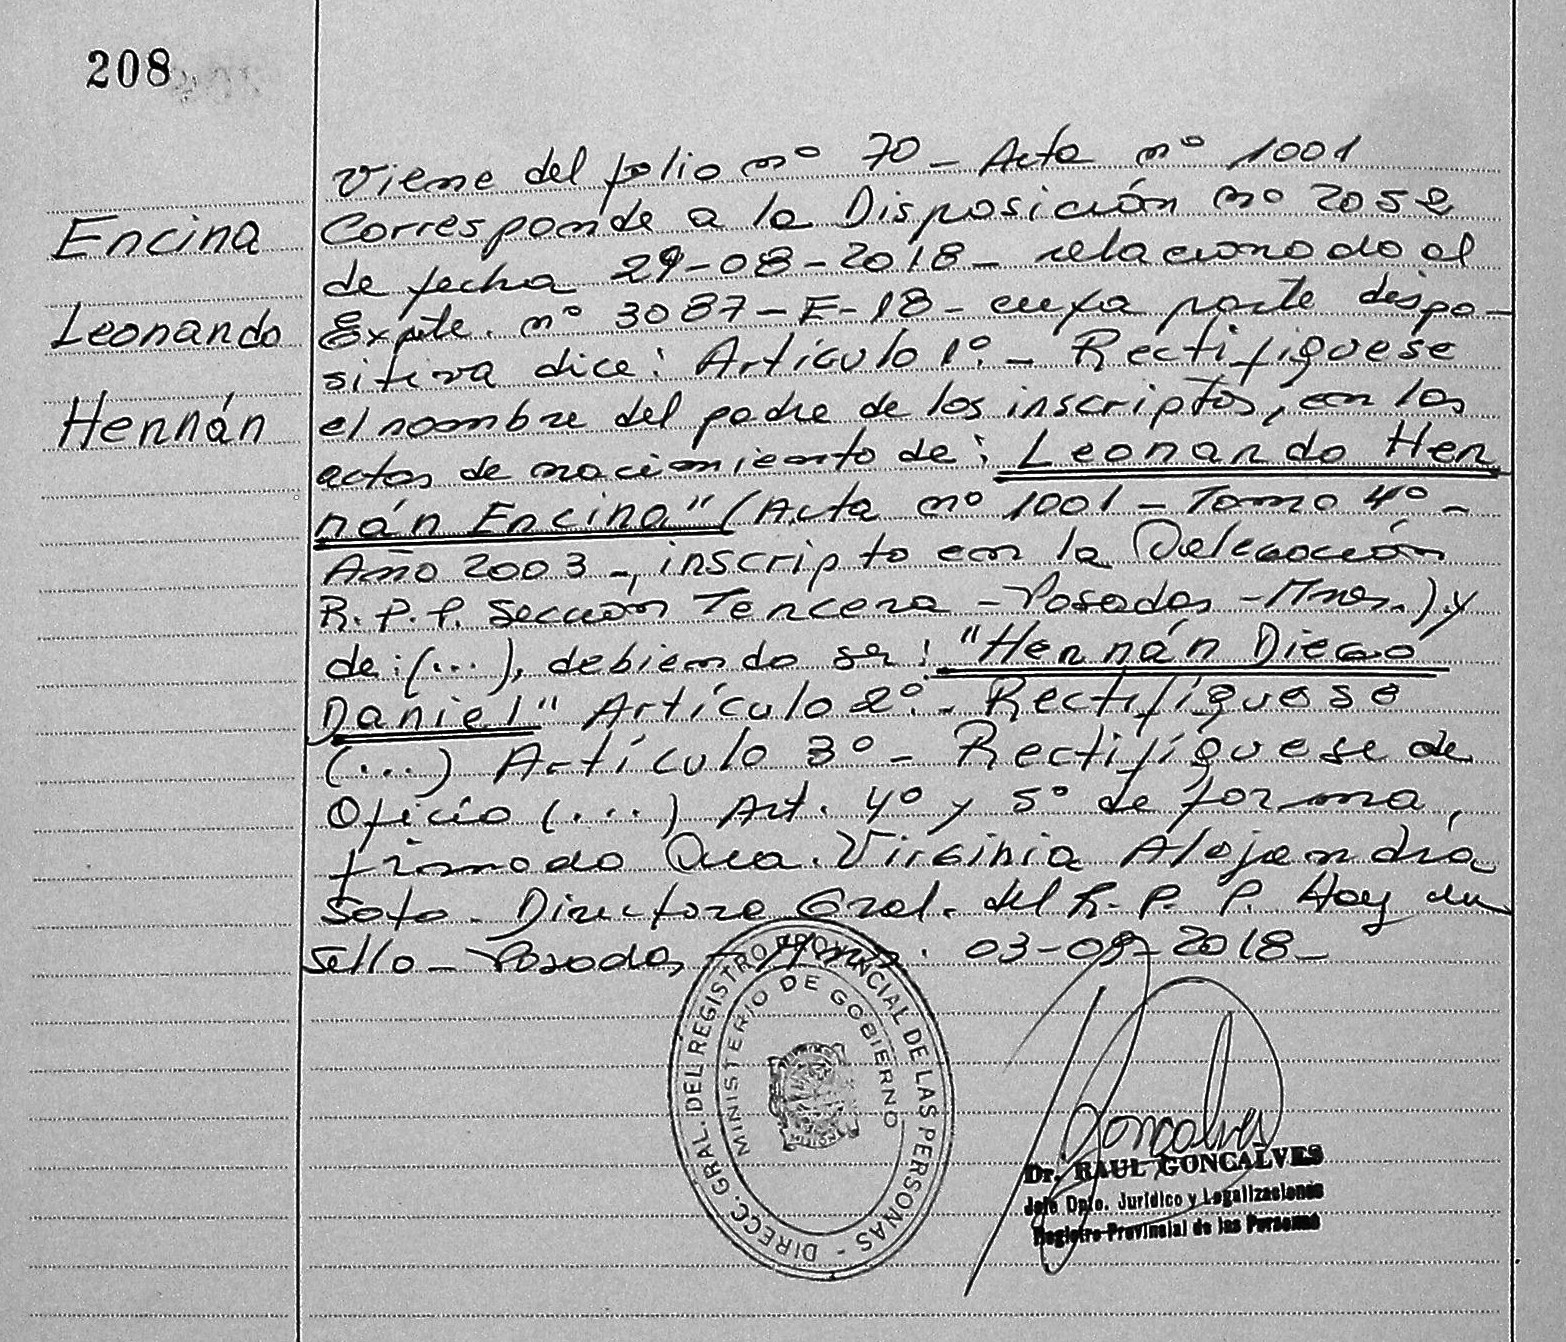 208
Encina
Leonando
Hernán
Viene del folio nº 70 - Acta nº 1001
Corresponde a la Disposición nº 2052
de fecha 29-08-2018 - relacionado al
Expte. nº 3087-E-18 - cuya parte dispo-
sitiva dice: Artículo 1º.- Rectifíquese
el nombre del padre de los inscriptos, en las
actas de nacimiento de: Leonardo Her
nán Encina" (Acta nº 1001 - Tomo 4º -
Año 2003 -, inscripto en la Delegación
R.P.P. Sección Tercera - Posadas - Mnes.) y
de: (...), debiendo ser: "Hernán Diego
Daniel" Artículo 2º.- Rectifíquese
(...) Artículo 3º - Rectifíquese de
Oficio (...) Art. 4º y 5º de forma,
firmado Dra. Virginia Alejandra
Soto - Directora Gral. del R.P.P. Hay un
sello - Posadas - Mnes. 03-09-2018 -
DIRECC. GRAL. DEL REGISTRO PROVINCIAL DE LAS PERSONAS -
MINISTERIO DE GOBIERNO
MISIONES
Goncalves
Dr. RAUL GONCALVES
Jefe Dpto. Jurídico y Legalizaciones
Registro Provincial de las Personas